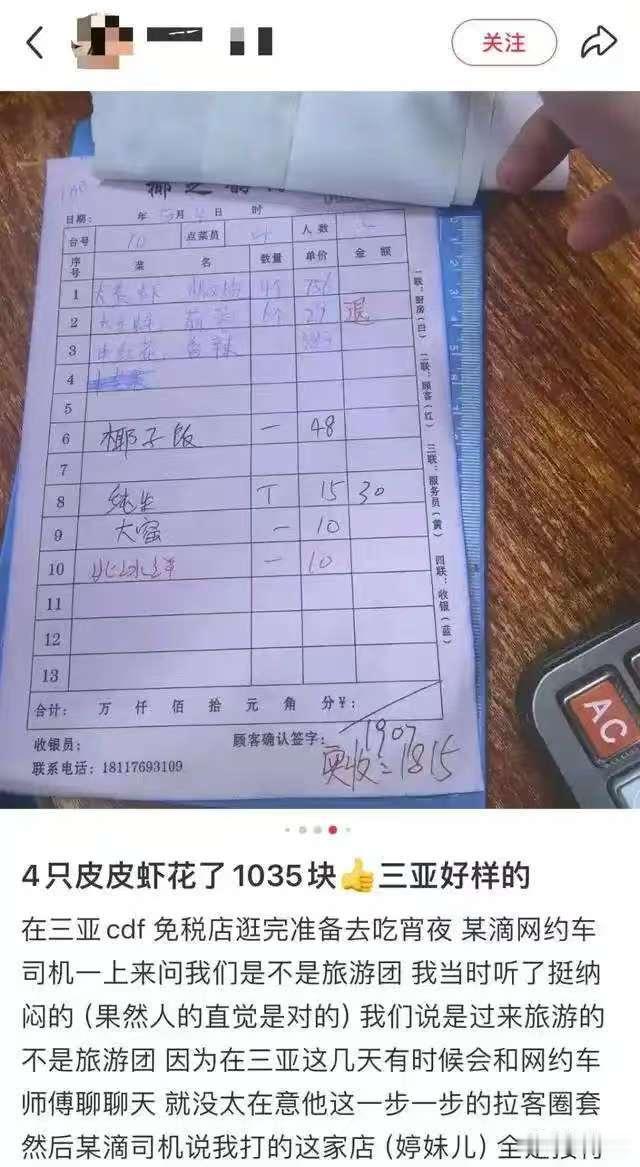 关注
日期: 年 月 日 时
台号 10 点菜员 人数
序号 菜名 数量 单价 金额
1 4个
2 个 29 退
3
4
5
6 椰子饭 一 48
7
8 纯生 T 15 30
9 大窑 一 10
10 一 10
11
12
13
合计: 万 仟 佰 拾 元 角 分¥:
1907
收银员: 顾客确认签字:
实收=1815
联系电话: 18117693109
一联:厨房(白) 二联:顾客(红) 三联:服务员(黄) 四联:收银(蓝)
AC
4只皮皮虾花了1035块👍三亚好样的
在三亚cdf 免税店逛完准备去吃宵夜 某滴网约车
司机一上来问我们是不是旅游团 我当时听了挺纳
闷的 (果然人的直觉是对的) 我们说是过来旅游的
不是旅游团 因为在三亚这几天有时候会和网约车
师傅聊聊天 就没太在意他这一步一步的拉客圈套
然后某滴司机说我打的这家店 (婷妹儿) 全是